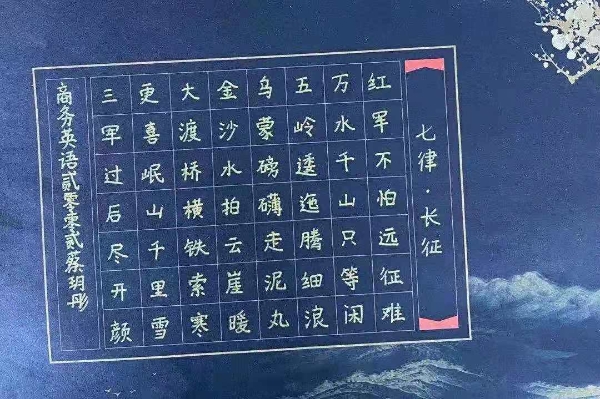 七律·长征
红军不怕远征难
万水千山只等闲
五岭逶迤腾细浪
乌蒙磅礴走泥丸
金沙水拍云崖暖
大渡桥横铁索寒
更喜岷山千里雪
三军过后尽开颜
商务英语贰零零贰蔡玥彤